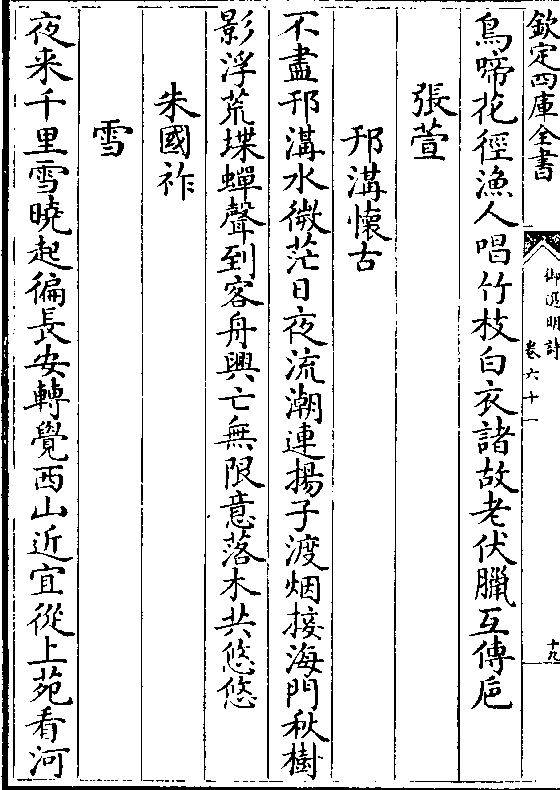 欽定四庫全書
御選明詩
卷六十一
十九
鳥啼花徑漁人唱竹枝白衣諸故老伏臘互傳巵
張萱
邗溝懷古
不盡邗溝水微茫日夜流潮連揚子渡烟接海門秋樹
影浮荒堞蟬聲到客舟興亡無限意落木共悠悠
朱國祚
雪
夜来千里雪曉起徧長安轉覺西山近宜從上苑看河